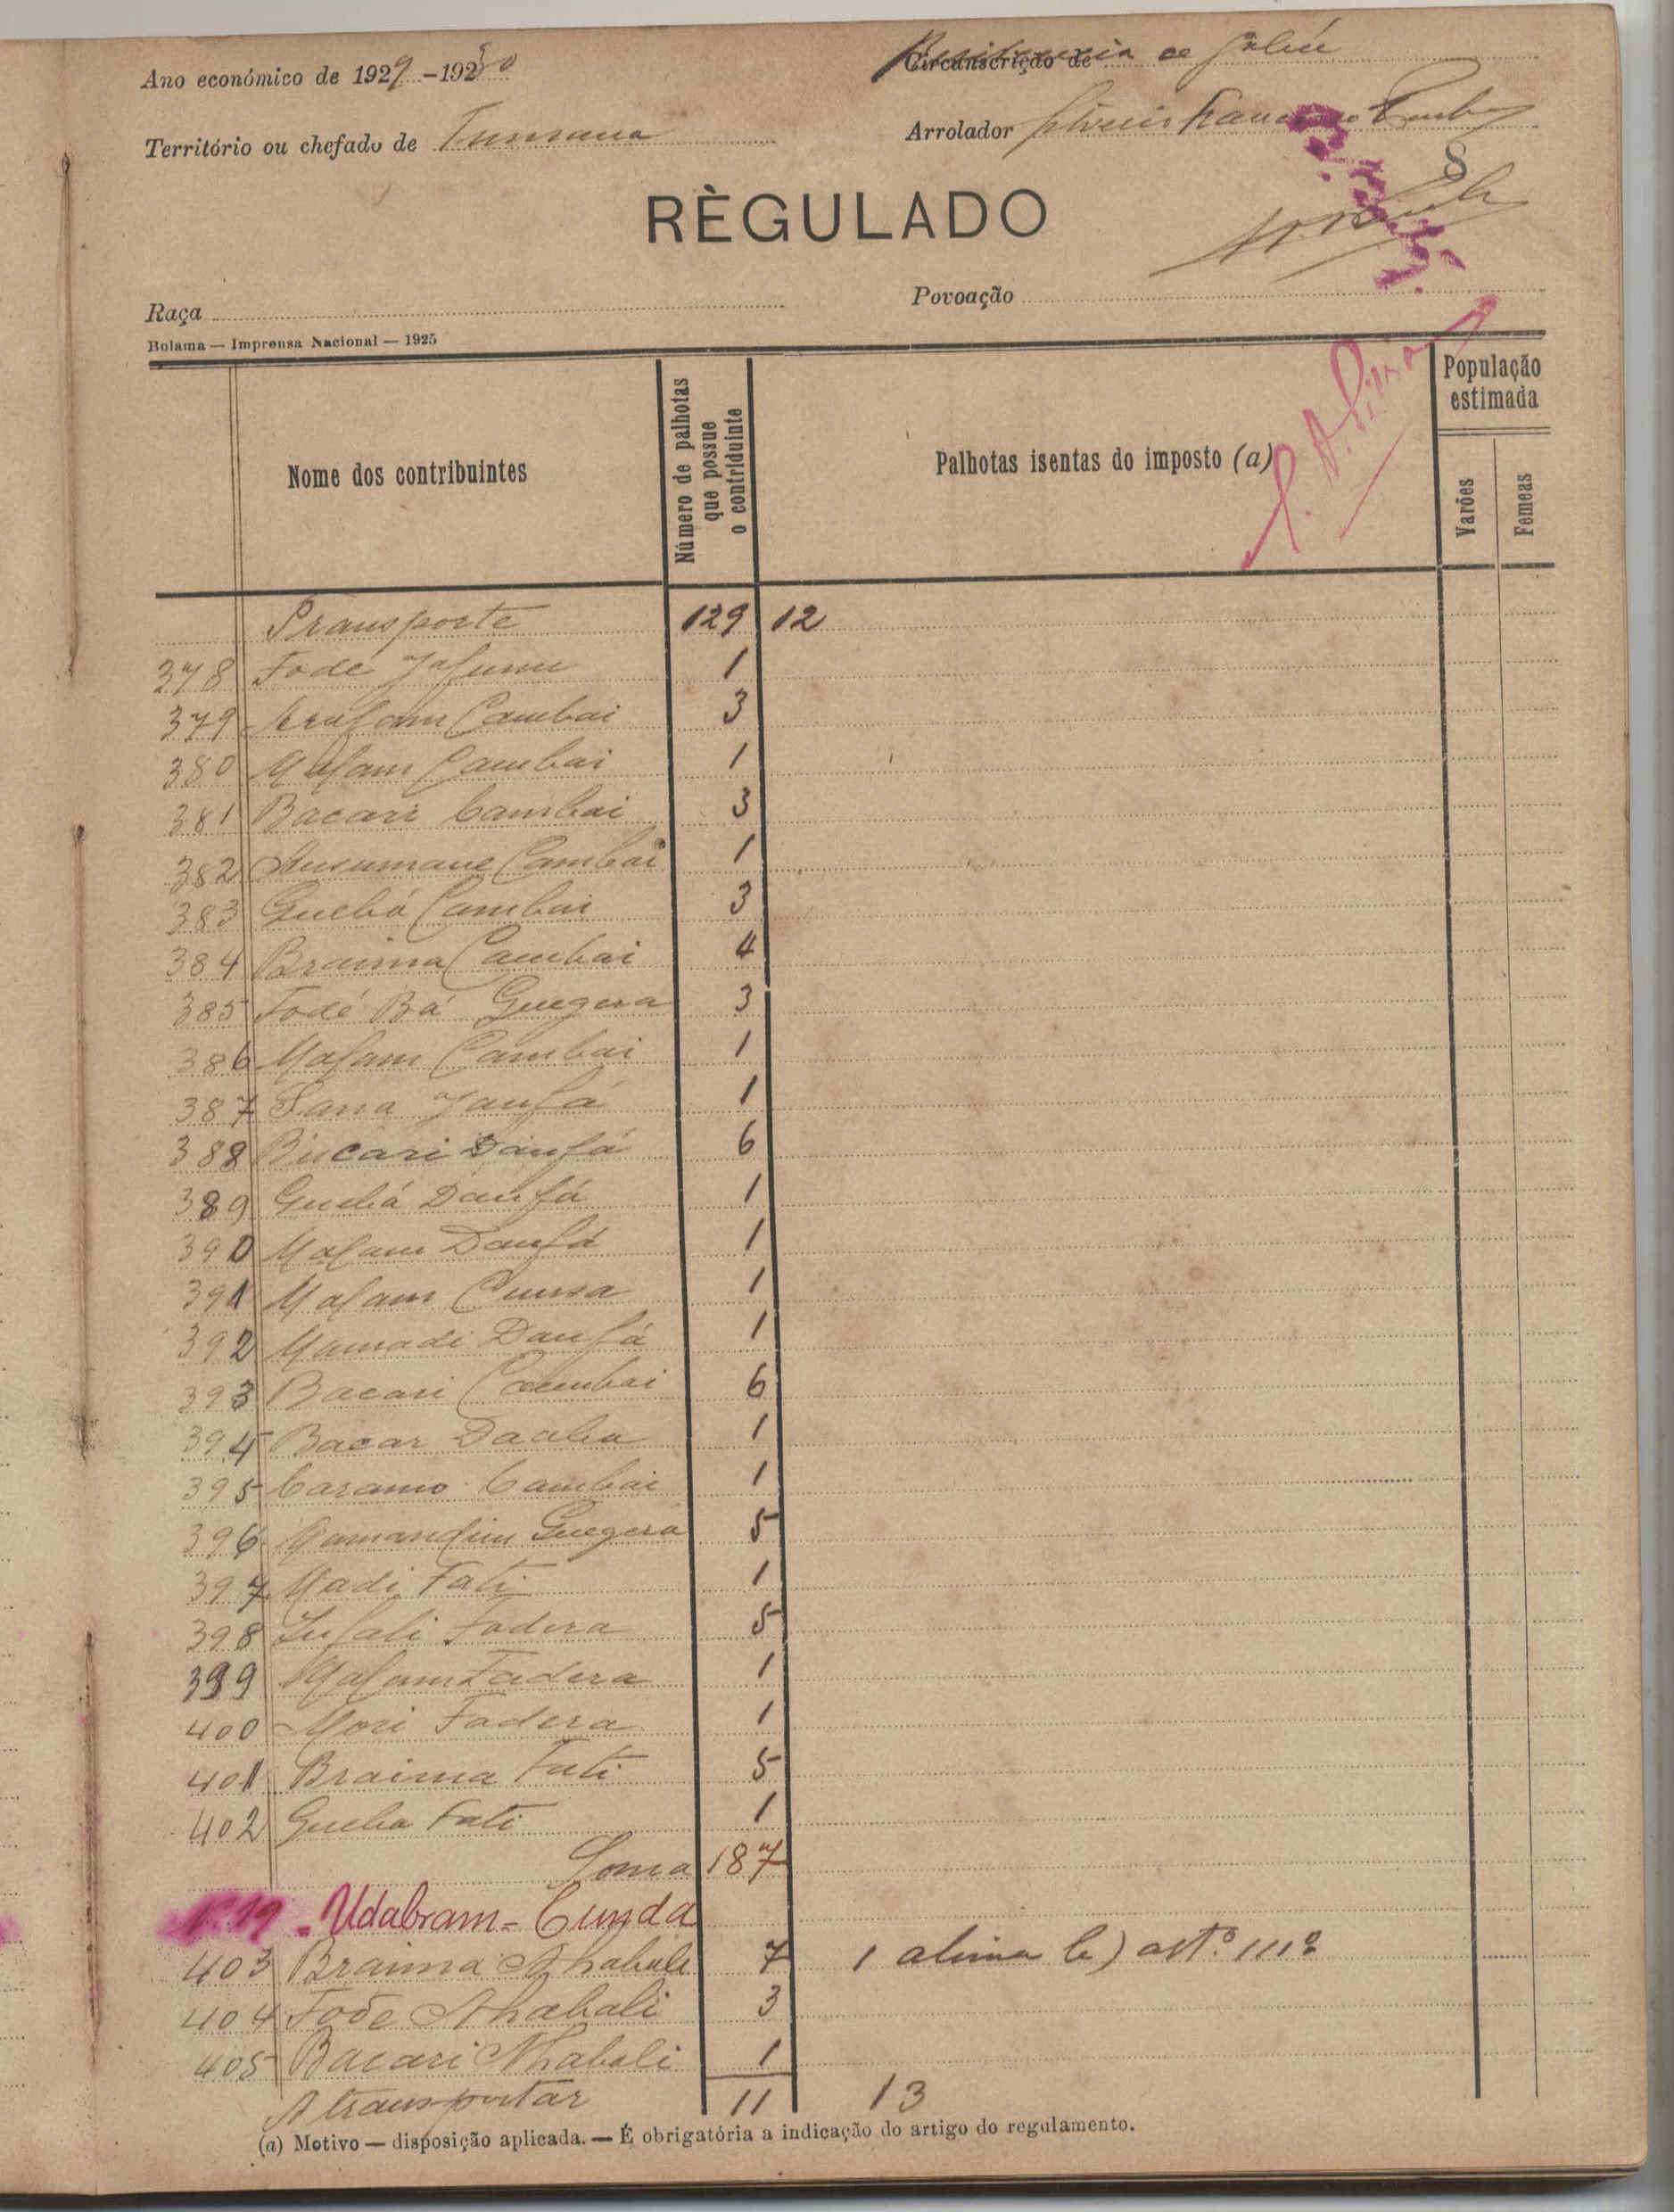 Ano económico de 1929-1930
Circunscrição de
Território ou chefado de Tumana
Arrolador
8
RÈGULADO
Raça
Povoação
Bolama — Imprensa Nacional — 1925
Nome dos contribuintes
Número de palhotas que possue o contriduinte
Palhotas isentas do imposto (a)
População estimada
Varões
Femeas
Transporte 129 12
378 Fodé 1
379 Cambai 3
380 Malam Cambai 1
381 Bacari Cambai 3
382 Cambai 1
383 Guebá Cambai 3
384 Braima Cambai 4
385 Fodé Bá Guegera 3
386 Malam Cambai 1
387 Sana 1
388 Bucari Danfá 6
389 Guebá Danfá 1
390 Malam Danfá 1
391 Malam 1
392 Mamadi Danfá 1
393 Bacari Cambai 6
394 Bacar 1
395 Caramo Cambai 1
396 Guegera 5
397 Madi Fati 1
398 Fadera 5
399 Malam Fadera 1
400 Mori Fadera 1
401 Braima Fati 5
402 Gueba Fati 1
Soma 187
19 - Udabram - Cunda
403 Braima Nhabali 7 1 alinea b) artº 111º
404 Fode Nhabali 3
405 Bacari Nhabali 1
A transportar 11 13
(a) Motivo — disposição aplicada. — É obrigatória a indicação do artigo do regulamento.